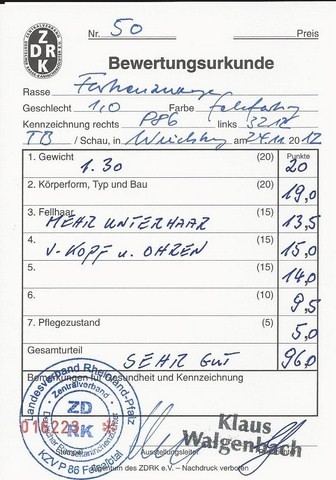 Nr. 50 Preis
ZDRK
Bewertungsurkunde
Rasse
Geschlecht 1,0 Farbe
Kennzeichnung rechts P86 links 3212
TB / Schau, in am 24.11 2012
1. Gewicht 1.30 (20) Punkte 20
2. Körperform, Typ und Bau (20) 19,0
3. Fellhaar MEHR UNTERHAAR (15) 13,5
4. V-KOPF u. OHREN (15) 15,0
5. (15) 14,0
6. (10) 9,5
7. Pflegezustand (5) 5,0
Gesamturteil SEHR GUT 96,0
Bemerkungen für Gesundheit und Kennzeichnung
Landesverband Rheinland-Pfalz
Zentralverband
ZD
RK
016223 *
KZV P 86
Ausstellungsleiter
Klaus
Walgenbach
des ZDRK e.V. – Nachdruck verboten